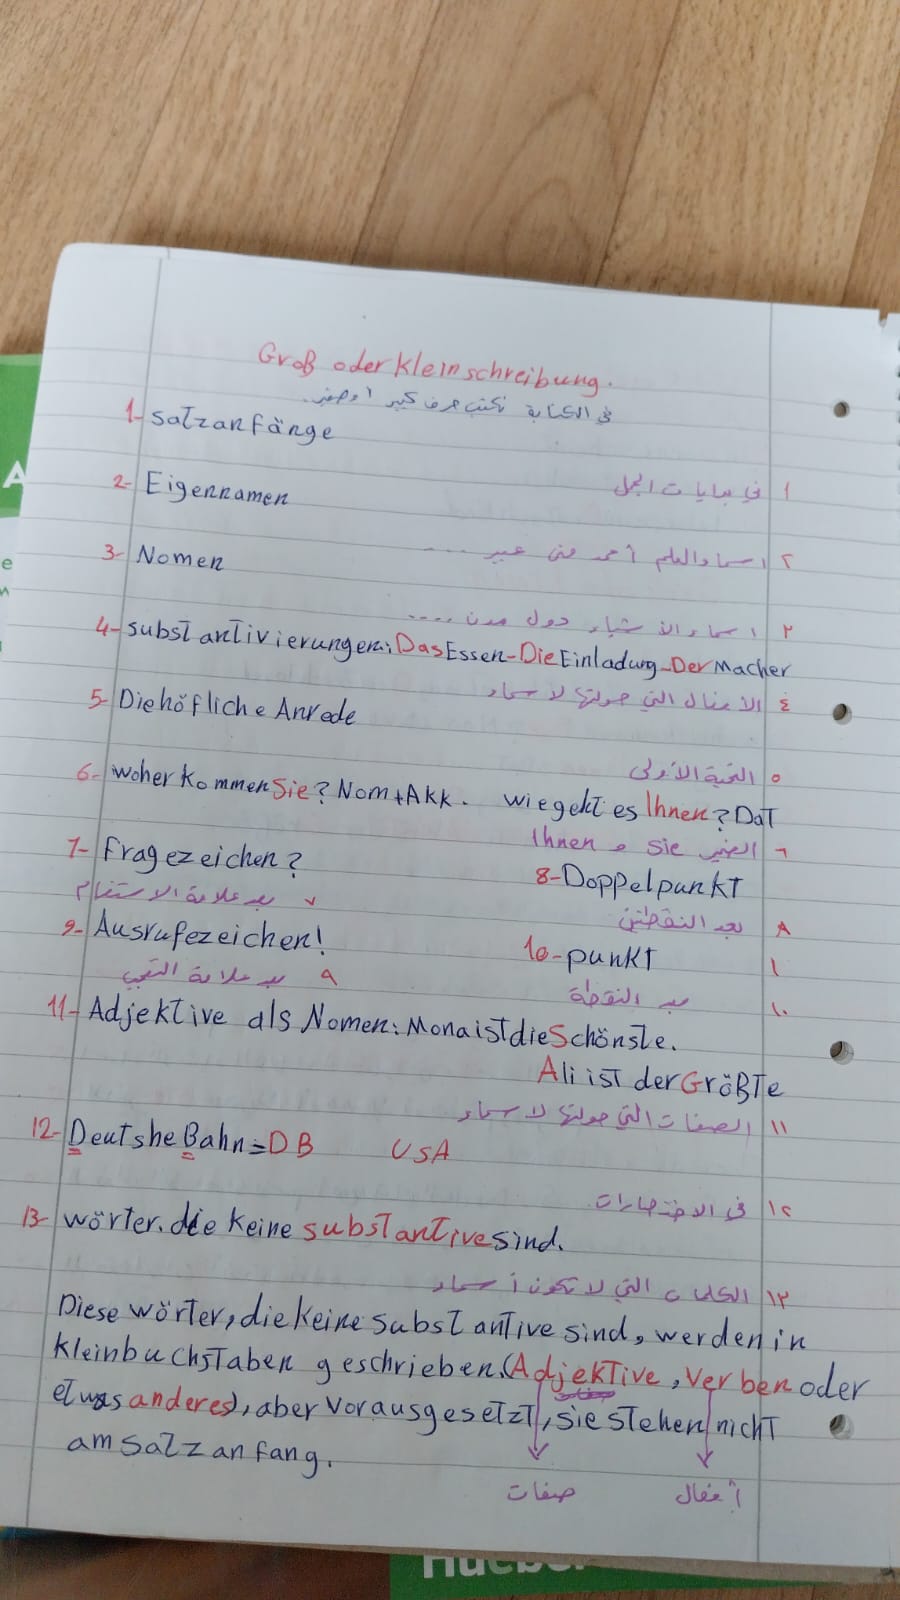 Groß oder kleinschreibung.
في الكتابة نكتب حرف كبير او صغير.
1- satzanfänge
١ في بدايات الجمل
2- Eigennamen
٢ اسماء العلم أحمد منى عبير ....
3- Nomen
٣ اسماء الأشياء دول مدن ....
4- substantivierungen: Das Essen - Die Einladung - Der Macher
٤ الافعال التي حولتها لأسماء
5- Die höfliche Anrede
٥ التحية الأولى
6- woher kommen Sie? Nom + Akk. wie geht es Ihnen? Dat
٦ الضمير Sie و Ihnen
7- Fragezeichen?
8- Doppelpunkt
٧ بعد علامة الاستفهام
٨ بعد النقطتين
9- Ausrufezeichen!
10- punkt
٩ بعد علامة التعجب
١٠ بعد النقطة
11- Adjektive als Nomen: Mona ist die Schönste.
Ali ist der Größte
١١ الصفات التي حولتها لأسماء
12- Deutshe Bahn = DB USA
١٢ في الاختصارات
13- wörter. die keine substantive sind.
١٣ الكلمات التي لا تكون أسماء
Diese wörter, die keine substantive sind, werden in
kleinbuchstaben geschrieben. (Adjektive, Verben oder
etwas anderes), aber vorausgesetzt, sie stehen nicht
am satzanfang.
صفات أفعال
A
e
Hueber